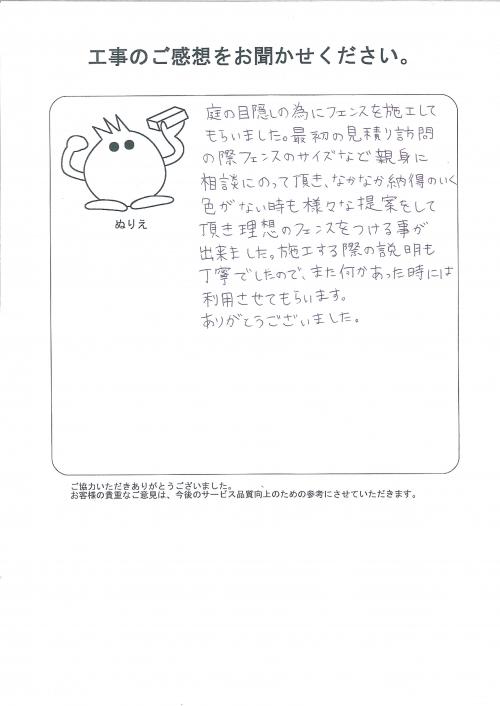 工事のご感想をお聞かせください。
庭の目隠しの為にフェンスを施工して
もらいました。最初の見積り訪問
の際フェンスのサイズなど親身に
相談にのって頂き、なかなか納得のいく
色がない時も様々な提案をして
頂き理想のフェンスをつける事が
出来ました。施工する際の説明も
丁寧でしたので、また何かあった時には
利用させてもらいます。
ありがとうございました。
ぬりえ
ご協力いただきありがとうございました。
お客様の貴重なご意見は、今後のサービス品質向上のための参考にさせていただきます。